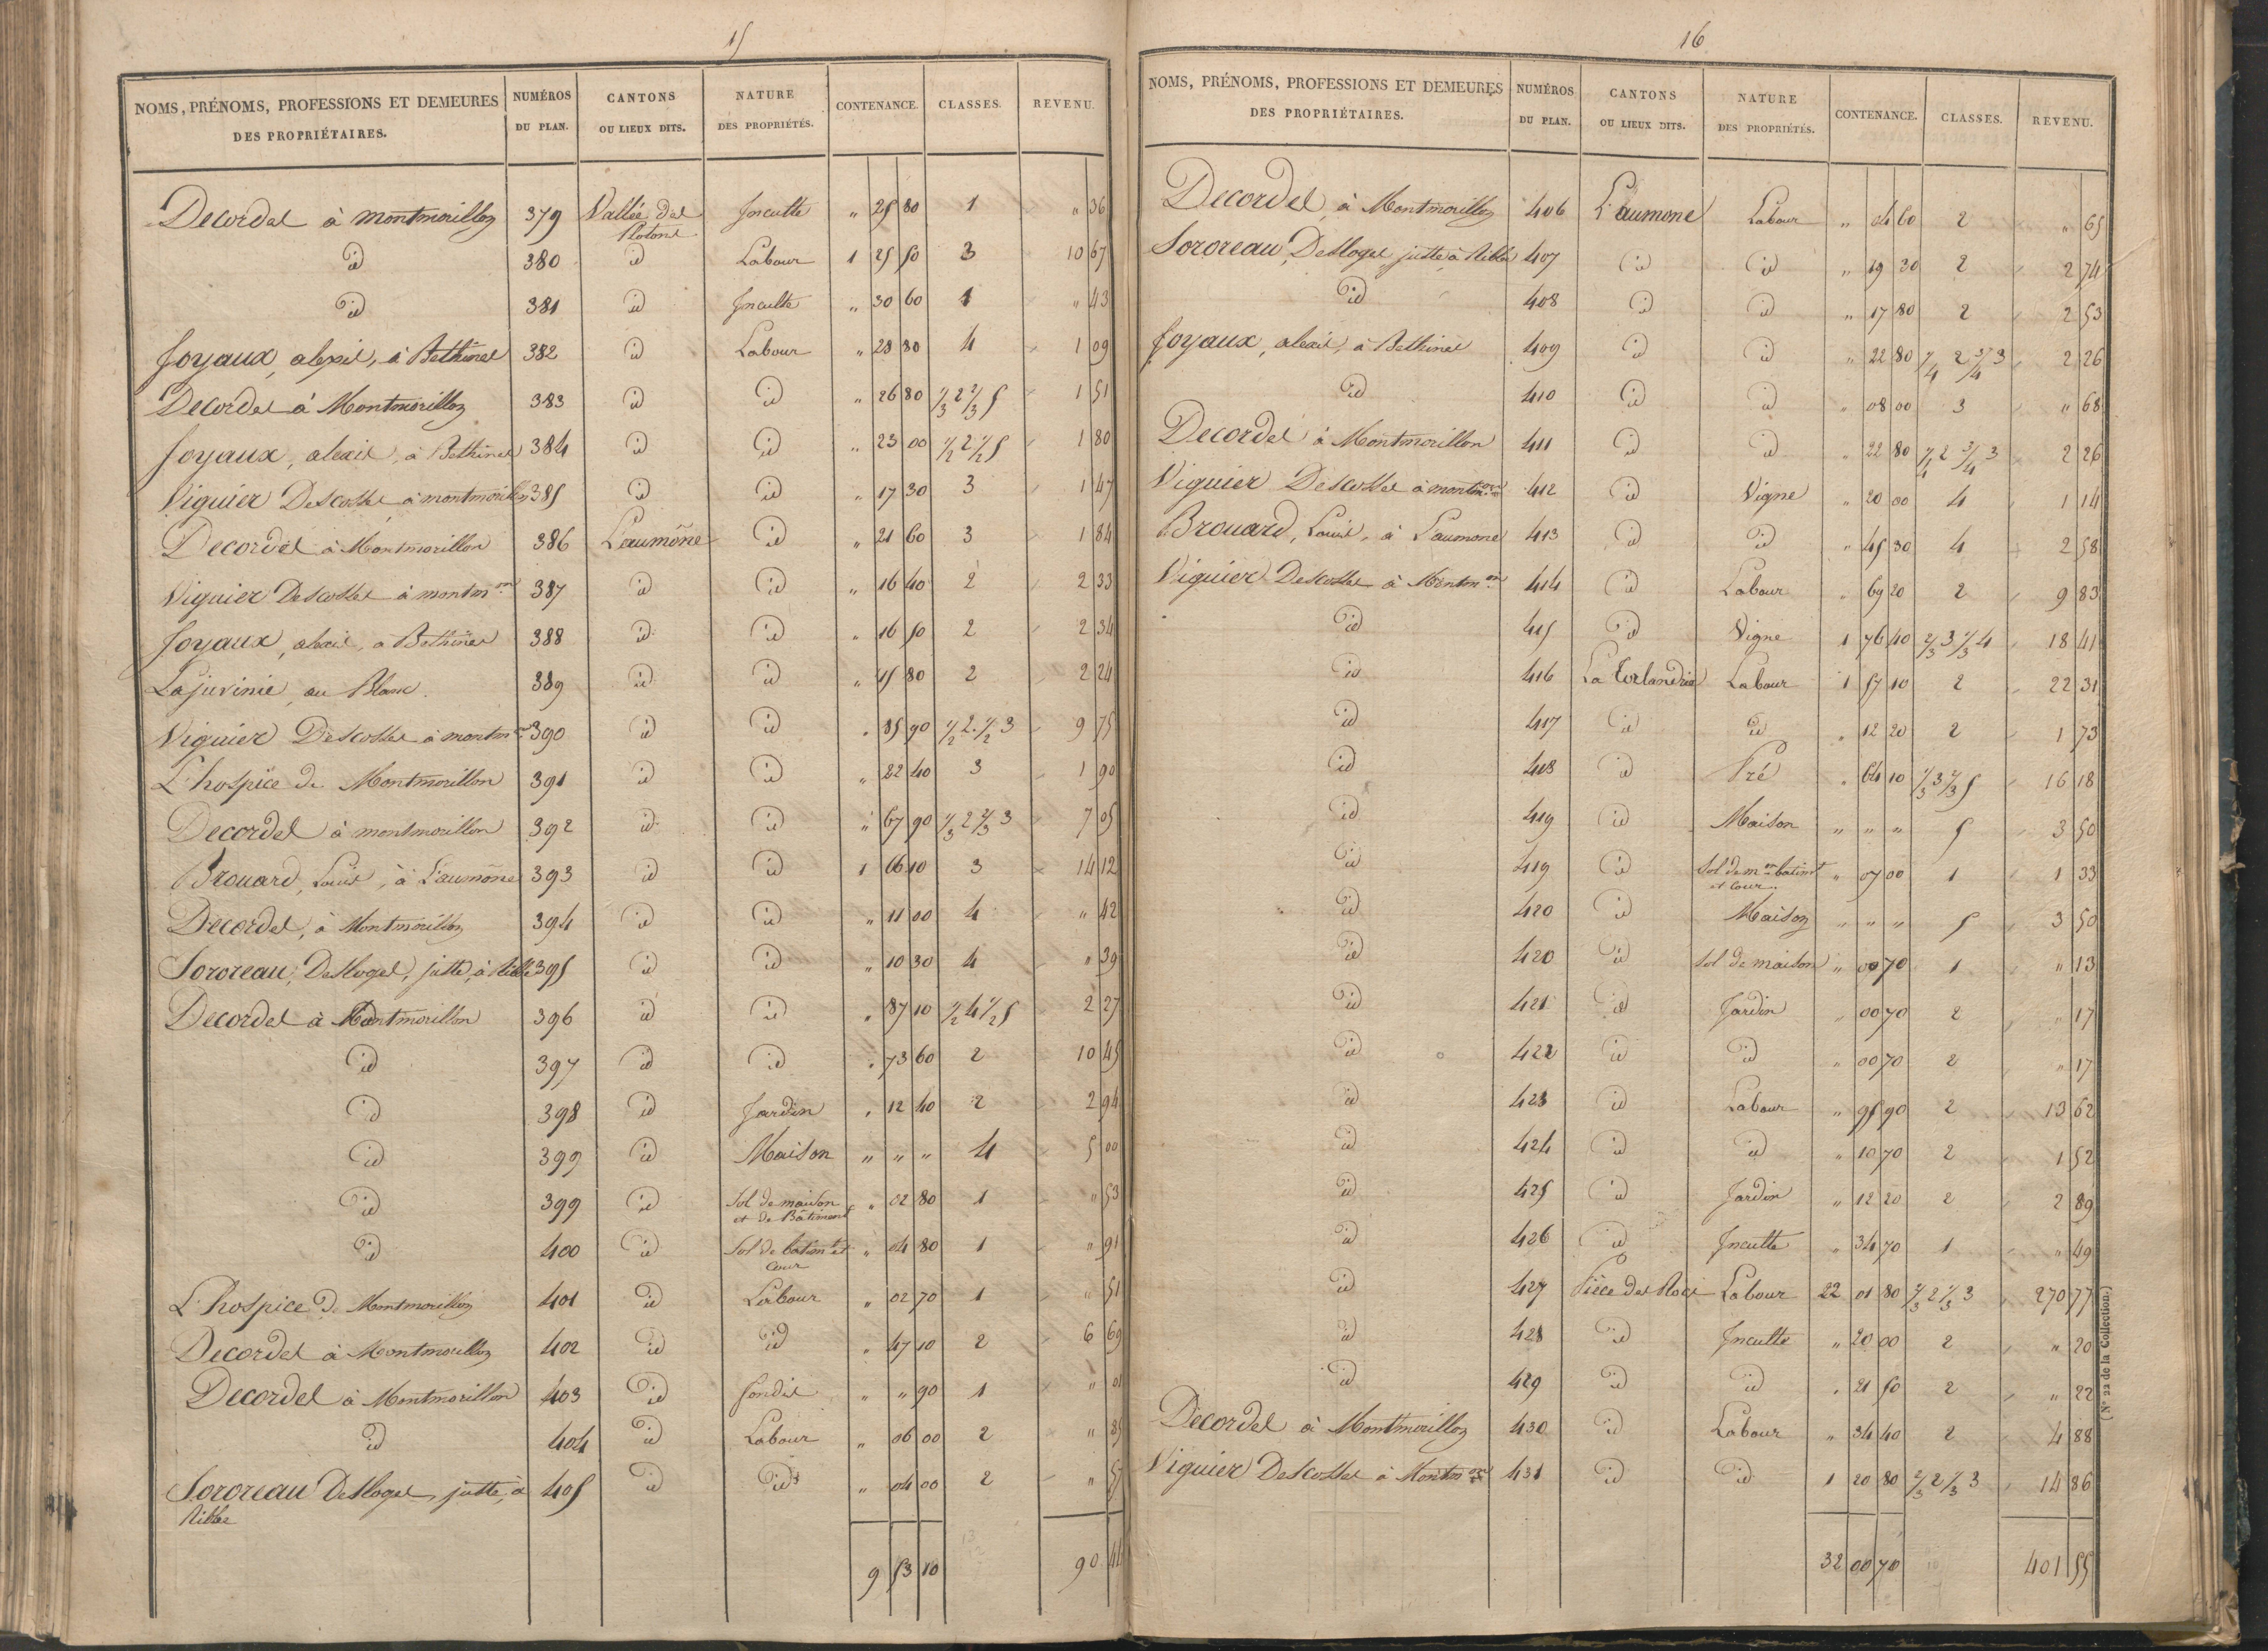 15
NOMS, PRÉNOMS, PROFESSIONS ET DEMEURES DES PROPRIÉTAIRES. NUMÉROS DU PLAN. CANTONS OU LIEUX DITS. NATURE DES PROPRIÉTÉS. CONTENANCE. CLASSES. REVENU.
Decordes à montmorillon 379 Vallée des Inculte " 25 80 1 " 36
id 380 id Labour 1 25 50 3 10 67
id 381 id Inculte " 30 60 1 " 43
Joyaux, alexis, à Bethines 382 id Labour " 28 80 4 1 09
Decordes à Montmorillon 383 id id " 26 80 1/3 2 2/3 5 1 51
Joyaux, alexis, à Bethines 384 id id " 23 00 1/2 2 1/2 5 1 80
Viguier Descosses à montmorillon 385 id id " 17 30 3 1 47
Decordes à Montmorillon 386 L'aumône id " 21 60 3 1 84
Viguier Descosses à montm.on 387 id id " 16 40 2 2 33
Joyaux, alexis, à Bethines 388 id id " 16 50 2 2 34
Lajurinie, au Blanc. 389 id id " 15 80 2 2 24
Viguier Descosses à montm.on 390 id id " 85 90 1/2 2 1/2 3 9 75
L'hospice de Montmorillon 391 id id " 22 40 3 1 90
Decordes à montmorillon 392 id id " 67 90 1/3 2 2/3 3 7 05
Brouard, Louis, à L'aumône 393 id id 1 66 10 3 14 12
Decordes, à Montmorillon 394 id id " 11 00 4 " 42
Sororeau, Desloges, juste, à 395 id id " 10 30 4 " 39
Decordes à Montmorillon 396 id id " 87 10 1/2 4 1/2 5 2 27
id 397 id id " 73 60 2 10 45
id 398 id Jardin " 12 40 2 2 94
id 399 id Maison " " " 4 5 00
id 399 id Sol de maison et de Bâtiment " 02 80 1 " 53
id 400 id Sol de batim.t et cour " 04 80 1 " 91
L'hospice de Montmorillon 401 id Labour " 02 70 1 " 51
Decordes à Montmorillon 402 id id " 47 10 2 6 69
Decordes à Montmorillon 403 id fondis " " 90 1 " 01
id 404 id Labour " 06 00 2 " 85
Sororeau Desloges, juste, à 405 id id " 04 00 2 " 57
9 53 10 90 44
16
NOMS, PRÉNOMS, PROFESSIONS ET DEMEURES DES PROPRIÉTAIRES. NUMÉROS DU PLAN. CANTONS OU LIEUX DITS. NATURE DES PROPRIÉTÉS. CONTENANCE. CLASSES. REVENU.
Decordes, à Montmorillon 406 L'aumone Labour " 04 60 2 " 65
Sororeau, Desloges, juste à 407 id id " 19 30 2 2 74
id 408 id id " 17 80 2 2 53
Joyaux, alexis, à Bethines 409 id id " 22 80 1/4 2 3/4 3 2 26
id 410 id id " 08 00 3 " 68
Decordes à Montmorillon 411 id id " 22 80 1/4 2 3/4 3 2 26
Viguier Descosses à montm.on 412 id Vigne " 20 00 4 1 14
Brouard, Louis, à L'aumone 413 id id " 45 30 4 2 58
Viguier Descosses à Montm.on 414 id Labour " 69 20 2 9 83
id 415 id Vigne 1 76 40 2/3 3 1/3 4 18 41
id 416 Labour 1 57 10 2 22 31
id 417 id id " 12 20 2 1 73
id 418 id Pré " 64 10 5 16 18
id 419 id Maison " " " 5 3 50
id 419 id Sol de m.on batim.t et cour " 07 00 1 1 33
id 420 id Maison " " " 5 3 50
id 420 id Sol de maison " 00 70 1 " 13
id 421 id Jardin " 00 70 2 " 17
id 422 id id " 00 70 2 " 17
id 423 id Labour " 95 90 2 13 62
id 424 id id " 10 70 2 1 52
id 425 id Jardin " 12 20 2 2 89
id 426 id Inculte " 34 70 1 " 49
id 427 Pièce des Labour 22 01 80 2/3 2 1/3 3 270 77
id 428 id Inculte " 20 00 2 " 20
id 429 id id " 21 50 2 " 22
Decordes à Montmorillon 430 id Labour " 34 40 2 4 88
Viguier Descosses à Montm.on 431 id id 1 20 80 2/3 2 1/3 3 14 86
32 00 70 401 55
(N° 22 de la Collection.)